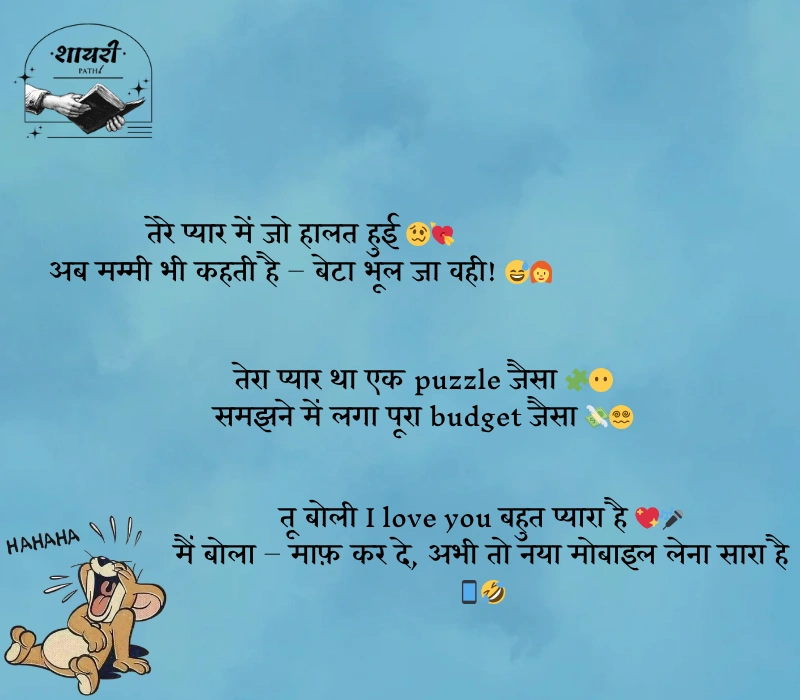 शायरी
PATH
तेरे प्यार में जो हालत हुई 🥴💘
अब मम्मी भी कहती है – बेटा भूल जा वही! 😅👩‍🦰
तेरा प्यार था एक puzzle जैसा 🧩😶
समझने में लगा पूरा budget जैसा 💸😵‍💫
तू बोली I love you बहुत प्यारा है 💖🎤
मैं बोला – माफ़ कर दे, अभी तो नया मोबाइल लेना सारा है
📱🤣
HAHAHA